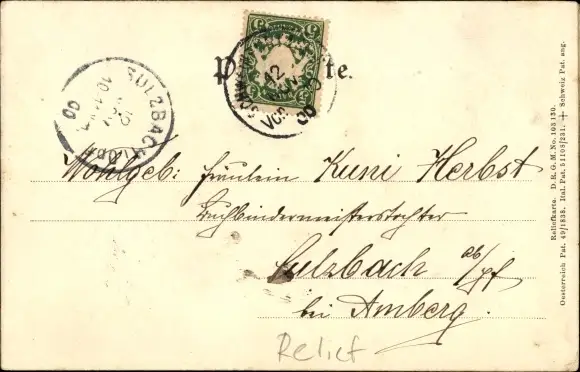 P te.
5 5
SULZBACH
Wohlgeb: Fräulein Kuni Herbst
Buchbindermeisterstochter
Sulzbach ob/pf
bei Amberg.
Relief
Reliefkarte. D. R. G. M. No. 105130.
Oesterreich Pat. 49/1838. Ital. Pat. 51108/231. + Schweiz Pat. ang.